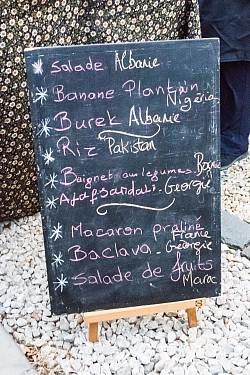 Salade Albanie
Banane Plantain
Nigéria
Burek Albanie
Riz Pakistan
Beignet aux legumes. Bosnie
Adjafsandali. Georgie
Macaron praliné
France
Baclava. Georgie
Salade de fruits
Maroc